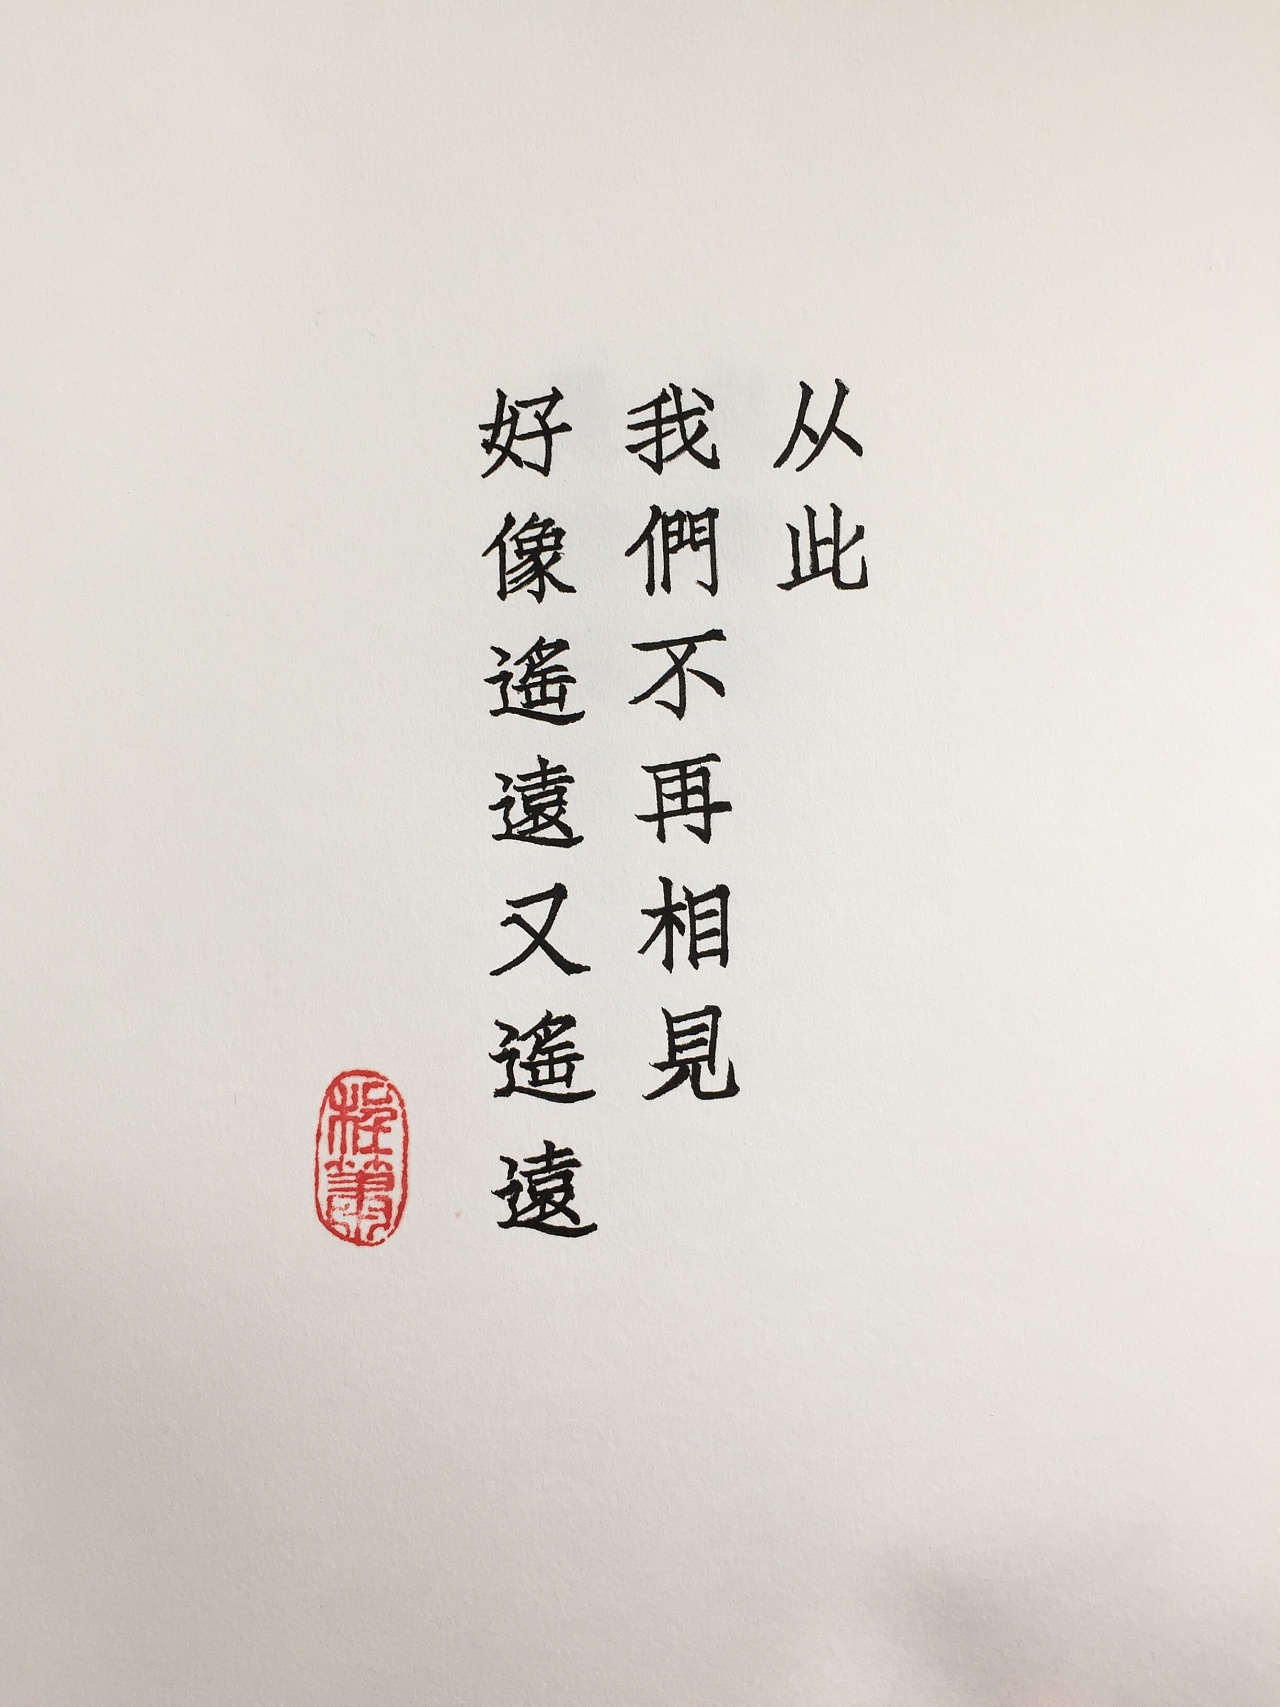 从此
我們不再相見
好像遙遠又遙遠